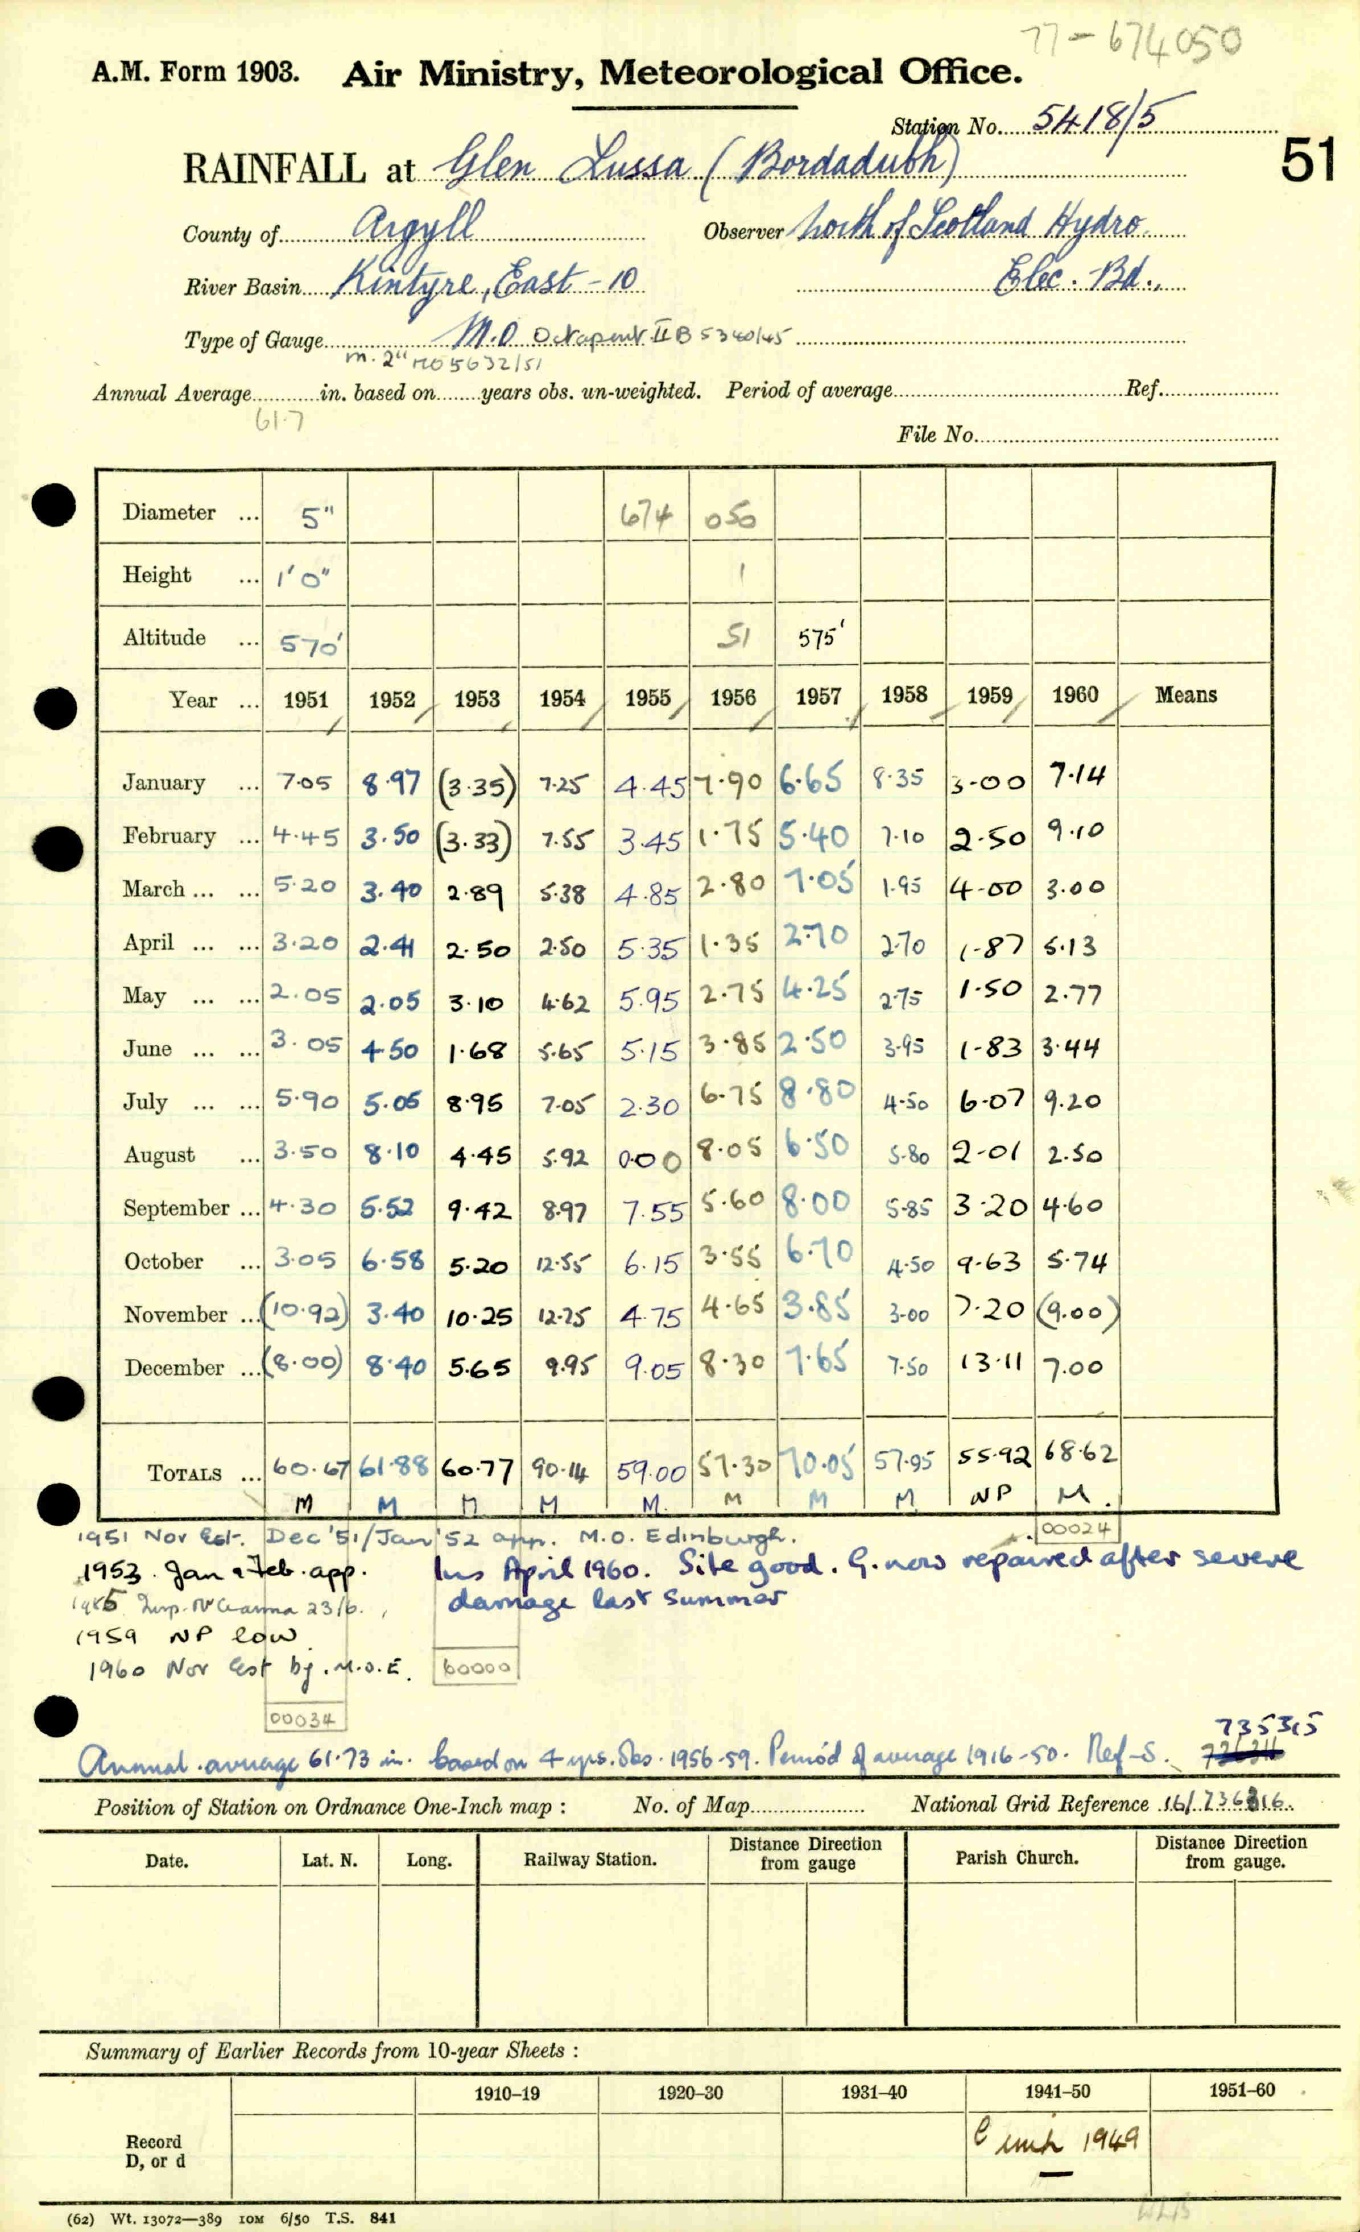 77-674050
A.M. Form 1903. Air Ministry, Meteorological Office.
Station No. 5418/5
51
RAINFALL at Glen Lussa (Bordadubh)
County of Argyll Observer North of Scotland Hydro.
River Basin Kintyre, East - 10 Elec. Bd.,
Type of Gauge M.O Octapent II B 5340/45
m. 2" MO 5632/51
Annual Average in. based on years obs. un-weighted. Period of average Ref.
61.7
File No.
Diameter ... 5" 674 050
Height ... 1'0" 1
Altitude ... 570' 51 575'
Year ... 1951 1952 1953 1954 1955 1956 1957 1958 1959 1960 Means
January ... 7.05 8.97 (3.35) 7.25 4.45 7.90 6.65 8.35 3.00 7.14
February ... 4.45 3.50 (3.33) 7.55 3.45 1.75 5.40 7.10 2.50 9.10
March ... ... 5.20 3.40 2.89 5.38 4.85 2.80 7.05 1.95 4.00 3.00
April ... ... 3.20 2.41 2.50 2.50 5.35 1.35 2.70 2.70 1.87 5.13
May ... ... 2.05 2.05 3.10 4.62 5.95 2.75 4.25 2.75 1.50 2.77
June ... ... 3.05 4.50 1.68 5.65 5.15 3.85 2.50 3.95 1.83 3.44
July ... ... 5.90 5.05 8.95 7.05 2.30 6.75 8.80 4.50 6.07 9.20
August ... 3.50 8.10 4.45 5.92 0.00 8.05 6.50 5.80 2.01 2.50
September ... 4.30 5.52 9.42 8.97 7.55 5.60 8.00 5.85 3.20 4.60
October ... 3.05 6.58 5.20 12.55 6.15 3.55 6.70 4.50 9.63 5.74
November ... (10.92) 3.40 10.25 12.75 4.75 4.65 3.85 3.00 7.20 (9.00)
December ... (8.00) 8.40 5.65 9.95 9.05 8.30 7.65 7.50 13.11 7.00
TOTALS ... 60.67 61.88 60.77 90.14 59.00 57.30 70.05 57.95 55.92 68.62
M M M M M. M M M NP M.
00024
1951 Nov Est. Dec '51/Jan '52 app. M.O. Edinburgh.
1953. Jan & Feb. app. Ins April 1960. Site good. G. now repaired after severe
damage last summer
1959 NP low
1960 Nov Est by. M.O.E. 60000
00034
735315
Annual average 61.73 in. based on 4 yrs. Obs. 1956-59. Period of average 1916-50. Ref-S. 736316
Position of Station on Ordnance One-Inch map : No. of Map National Grid Reference 16/736316
Date. Lat. N. Long. Railway Station. Distance Direction from gauge Parish Church. Distance Direction from gauge.
Summary of Earlier Records from 10-year Sheets :
1910–19 1920–30 1931–40 1941–50 1951–60
Record
D, or d
1949
(62) Wt. 13072—389 10M 6/50 T.S. 841